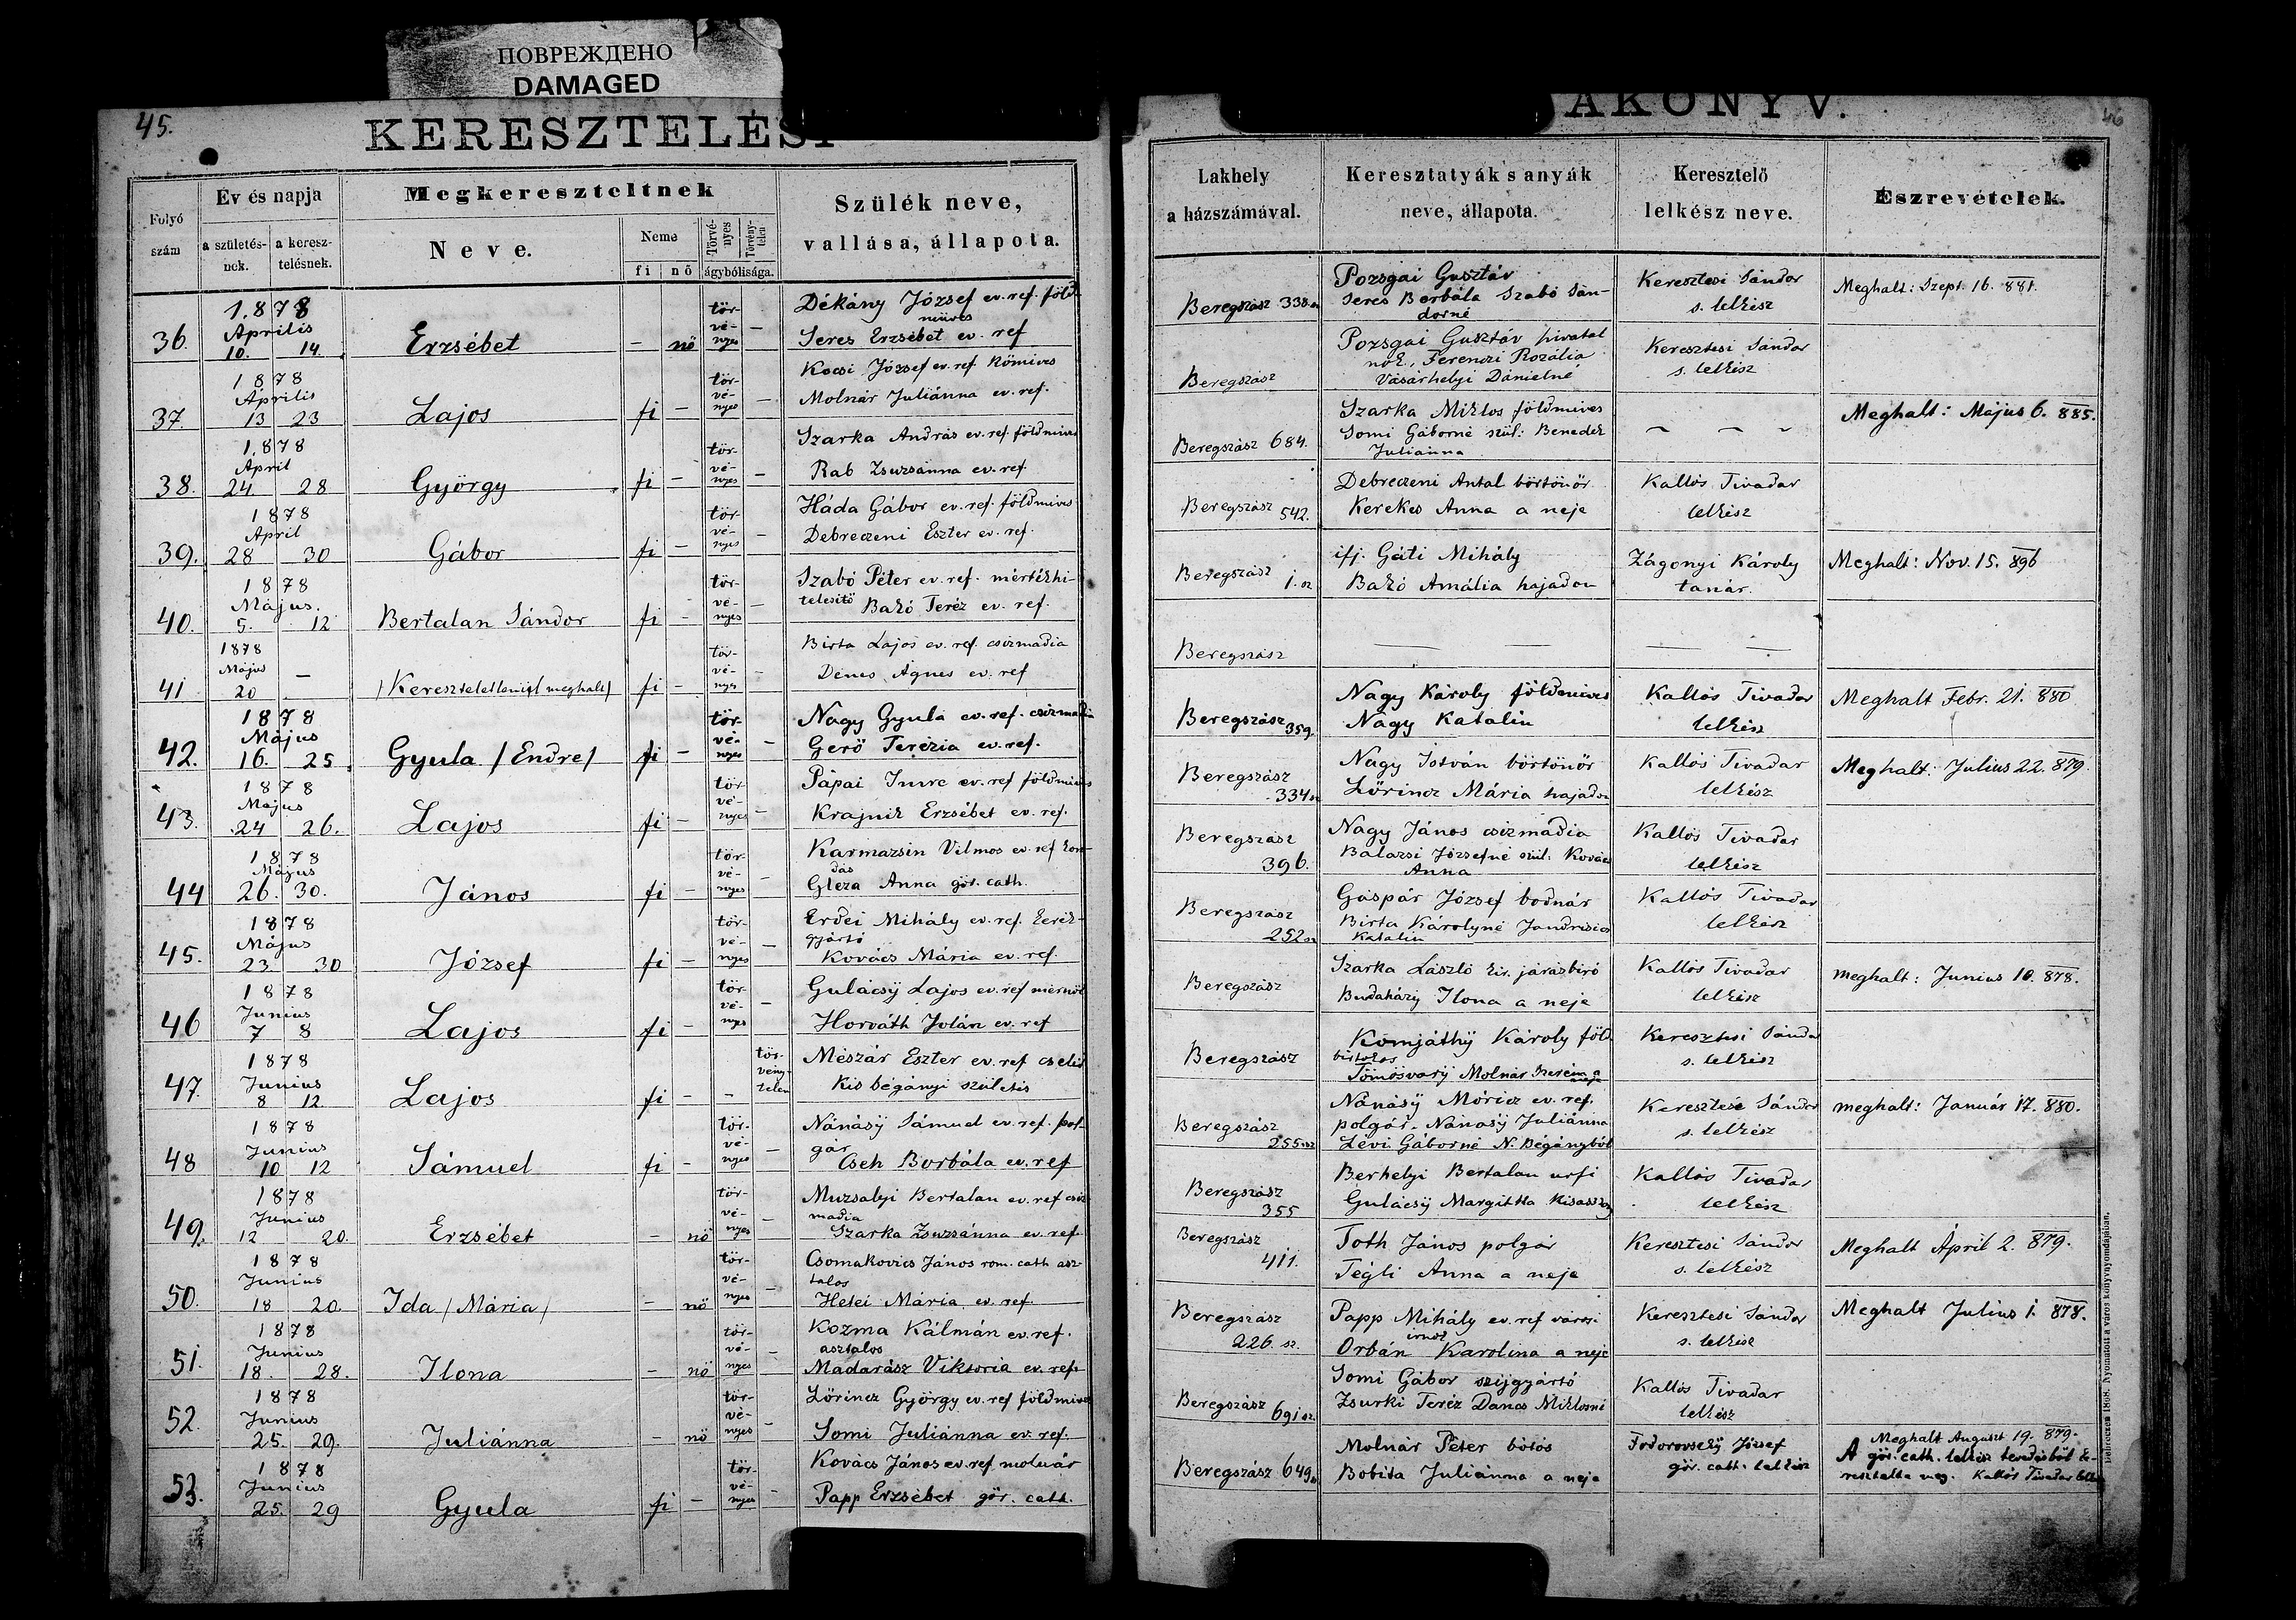 ПОВРЕЖДЕНО
DAMAGED
45.
KERESZTELÉSI
Folyó szám
Év és napja
a születés-nek.
a keresz-telésnek.
Megkereszteltnek
Neve.
Neme
fi nő
Törvé-nyes
Törvény-telen
ágybólisága.
Szülék neve,
vallása, állapota.
1878
Aprilis
36. 10. 14. Erzsébet - nő tör-vé-nyes - Dékány József ev. ref. föld-
müves
Seres Erzsébet ev. ref
1878
Aprilis
37. 13 23 Lajos fi - tör-vé-nyes - Kocsi József ev. ref. kőmives
Molnár Juliánna ev. ref.
1878
April
38. 24. 28 György fi - tör-vé-nyes - Szarka András ev. ref. földmives
Rab Zsuzsánna ev. ref.
1878
April
39. 28 30 Gábor fi - tör-vé-nyes - Háda Gábor ev. ref. földmives
Debreczeni Eszter ev. ref.
1878
Május.
40. 5. 12 Bertalan Sándor fi - tör-vé-nyes - Szabó Péter ev. ref. mértékhi-
telesitő Bakó Teréz ev. ref.
1878
Május
41 20 - /Kereszteletlenül meghalt/ fi - tör-vé-nyes - Birta Lajos ev. ref. csizmadia
Dénes Ágnes ev. ref
1878
Május
42. 16. 25 Gyula /Endre/ fi - tör-vé-nyes - Nagy Gyula ev. ref. csizmadia
Gerő Terézia ev. ref.
1878
Május
43. 24 26. Lajos fi - tör-vé-nyes - Pápai Imre ev. ref földmives
Krajnik Erzsébet ev. ref.
1878
Május
44 26. 30. János fi - tör-vé-nyes - Karmazsin Vilmos ev. ref kon-
dás
Gleza Anna gör. cath.
1878
Május
45. 23 30 József fi - tör-vé-nyes - Erdei Mihály ev. ref. kerék-
gyártó
Kovács Mária ev. ref.
1878
Junius
46 7 8 Lajos fi - tör-vé-nyes - Gulácsÿ Lajos ev. ref mérnök
Horváth Jolán ev. ref
1878
Junius
47. 8 12. Lajos fi - - tör-vény-telen Mészár Eszter ev. ref cseléd
Kis bégányi születés
1878
Junius
48 10 12 Sámuel fi - tör-vé-nyes - Nánásÿ Sámuel ev. ref. pol-
gár
Cseh Borbála ev. ref
1878
Junius
49. 12 20. Erzsébet - nő tör-vé-nyes - Muzsalyi Bertalan ev. ref csiz
madia
Szarka Zsuzsánna ev. ref.
1878
Junius
50. 18 20. Ida /Mária/ - nő tör-vé-nyes - Csomakovics János rom. cath asz-
talos
Hetei Mária ev. ref
1878
Junius
51. 18. 28. Ilona - nő tör-vé-nyes - Kozma Kálmán ev. ref.
asztalos
Madarász Viktoria ev. ref.
1878
Junius
52. 25. 29. Juliánna - nő tör-vé-nyes - Lőrincz György ev. ref földmives
Somi Juliánna ev. ref.
1878
Junius
53. 25. 29 Gyula fi - tör-vé-nyes - Kovács János ev. ref. molnár
Papp Erzsébet gör. cath.
AKÖNYV.
46
Lakhely
a házszámával.
Keresztatyák s anyák
neve, állapota.
Keresztelő
lelkész neve.
Észrevételek.
Beregszász 338. sz
Pozsgai Gusztáv
Seres Borbála Szabó Sán-
dorné
Keresztesi Sándor
s. lelkész
Meghalt: Szept. 16. 881.
Beregszász
Pozsgai Gusztáv hivatal
nok, Ferenczi Rozália
Vásárhelyi Dánielné
Keresztesi Sándor
s. lelkész
Beregszász 684.
Szarka Miklos földmives
Somi Gáborné szül: Benedek
Juliánna
Meghalt: Május 6. 885.
Beregszász 542.
Debreczeni Antal börtönőr
Kerekes Anna a neje
Kallós Tivadar
lelkész
Beregszász 1. sz
ifj. Gáti Mihály
Bakó Amália hajadon
Zágonyi Károly
tanár.
Meghalt: Nov. 15. 896
Beregszász
Beregszász 359.
Nagy Károly földmives
Nagy Katalin
Kallós Tivadar
lelkész
Meghalt Febr. 21. 880
Beregszász
334 sz
Nagy István börtönőr
Lőrincz Mária hajadon
Kallós Tivadar
lelkész
Meghalt: Julius 22. 879.
Beregszász
396.
Nagy János csizmadia
Balazsi Józsefné szül: Kovács
Anna
Kallós Tivadar
lelkész
Beregszász
252 sz
Gáspár József bodnár
Birta Károlyné Jandrisics
Katalin
Kallós Tivadar
lelkész
Beregszász
Szarka László kir. járásbiró
Budaházy Ilona a neje
Kallós Tivadar
lelkész
meghalt: Junius 10. 878.
Beregszász
Komjáthÿ Károly föld
birtokos
Tömösvarÿ Molnár Szerém a
neje
Keresztesi Sándor
s. lelkész
Beregszász
255 sz
Nánásÿ Móricz ev. ref.
polgár. Nánásÿ Juliánna
Lévi Gáborné N. Bégányból
Keresztesi Sándor
s. lelkész
meghalt: Január 17. 880.
Beregszász
355
Berhelyi Bertalan urfi
Gulácsÿ Margitta kisasszony
Kallós Tivadar
lelkész
Beregszász
411.
Toth János polgár
Tégli Anna a neje
Keresztesi Sándor
s. lelkész
Meghalt April 2. 879.
Beregszász
226. sz.
Papp Mihály ev. ref városi
irnok
Orbán Karolina a neje
Keresztesi Sándor
s. lelkész
Meghalt Julius 1. 878.
Beregszász 691 sz.
Somi Gábor szijgyártó
Zsurki Teréz Dancs Miklosné
Kallós Tivadar
lelkész
Beregszász 649 sz
Molnár Péter bótos
Bobita Juliánna a neje
Fodorovszkÿ József
gör. cath. lelkész
Meghalt August 19. 879.
A gör. cath. lelkész tévedésből ke-
resztelte meg. Kallós Tivadar lelk.
Debreczen 1868. Nyomatott a város könyvnyomdájában.